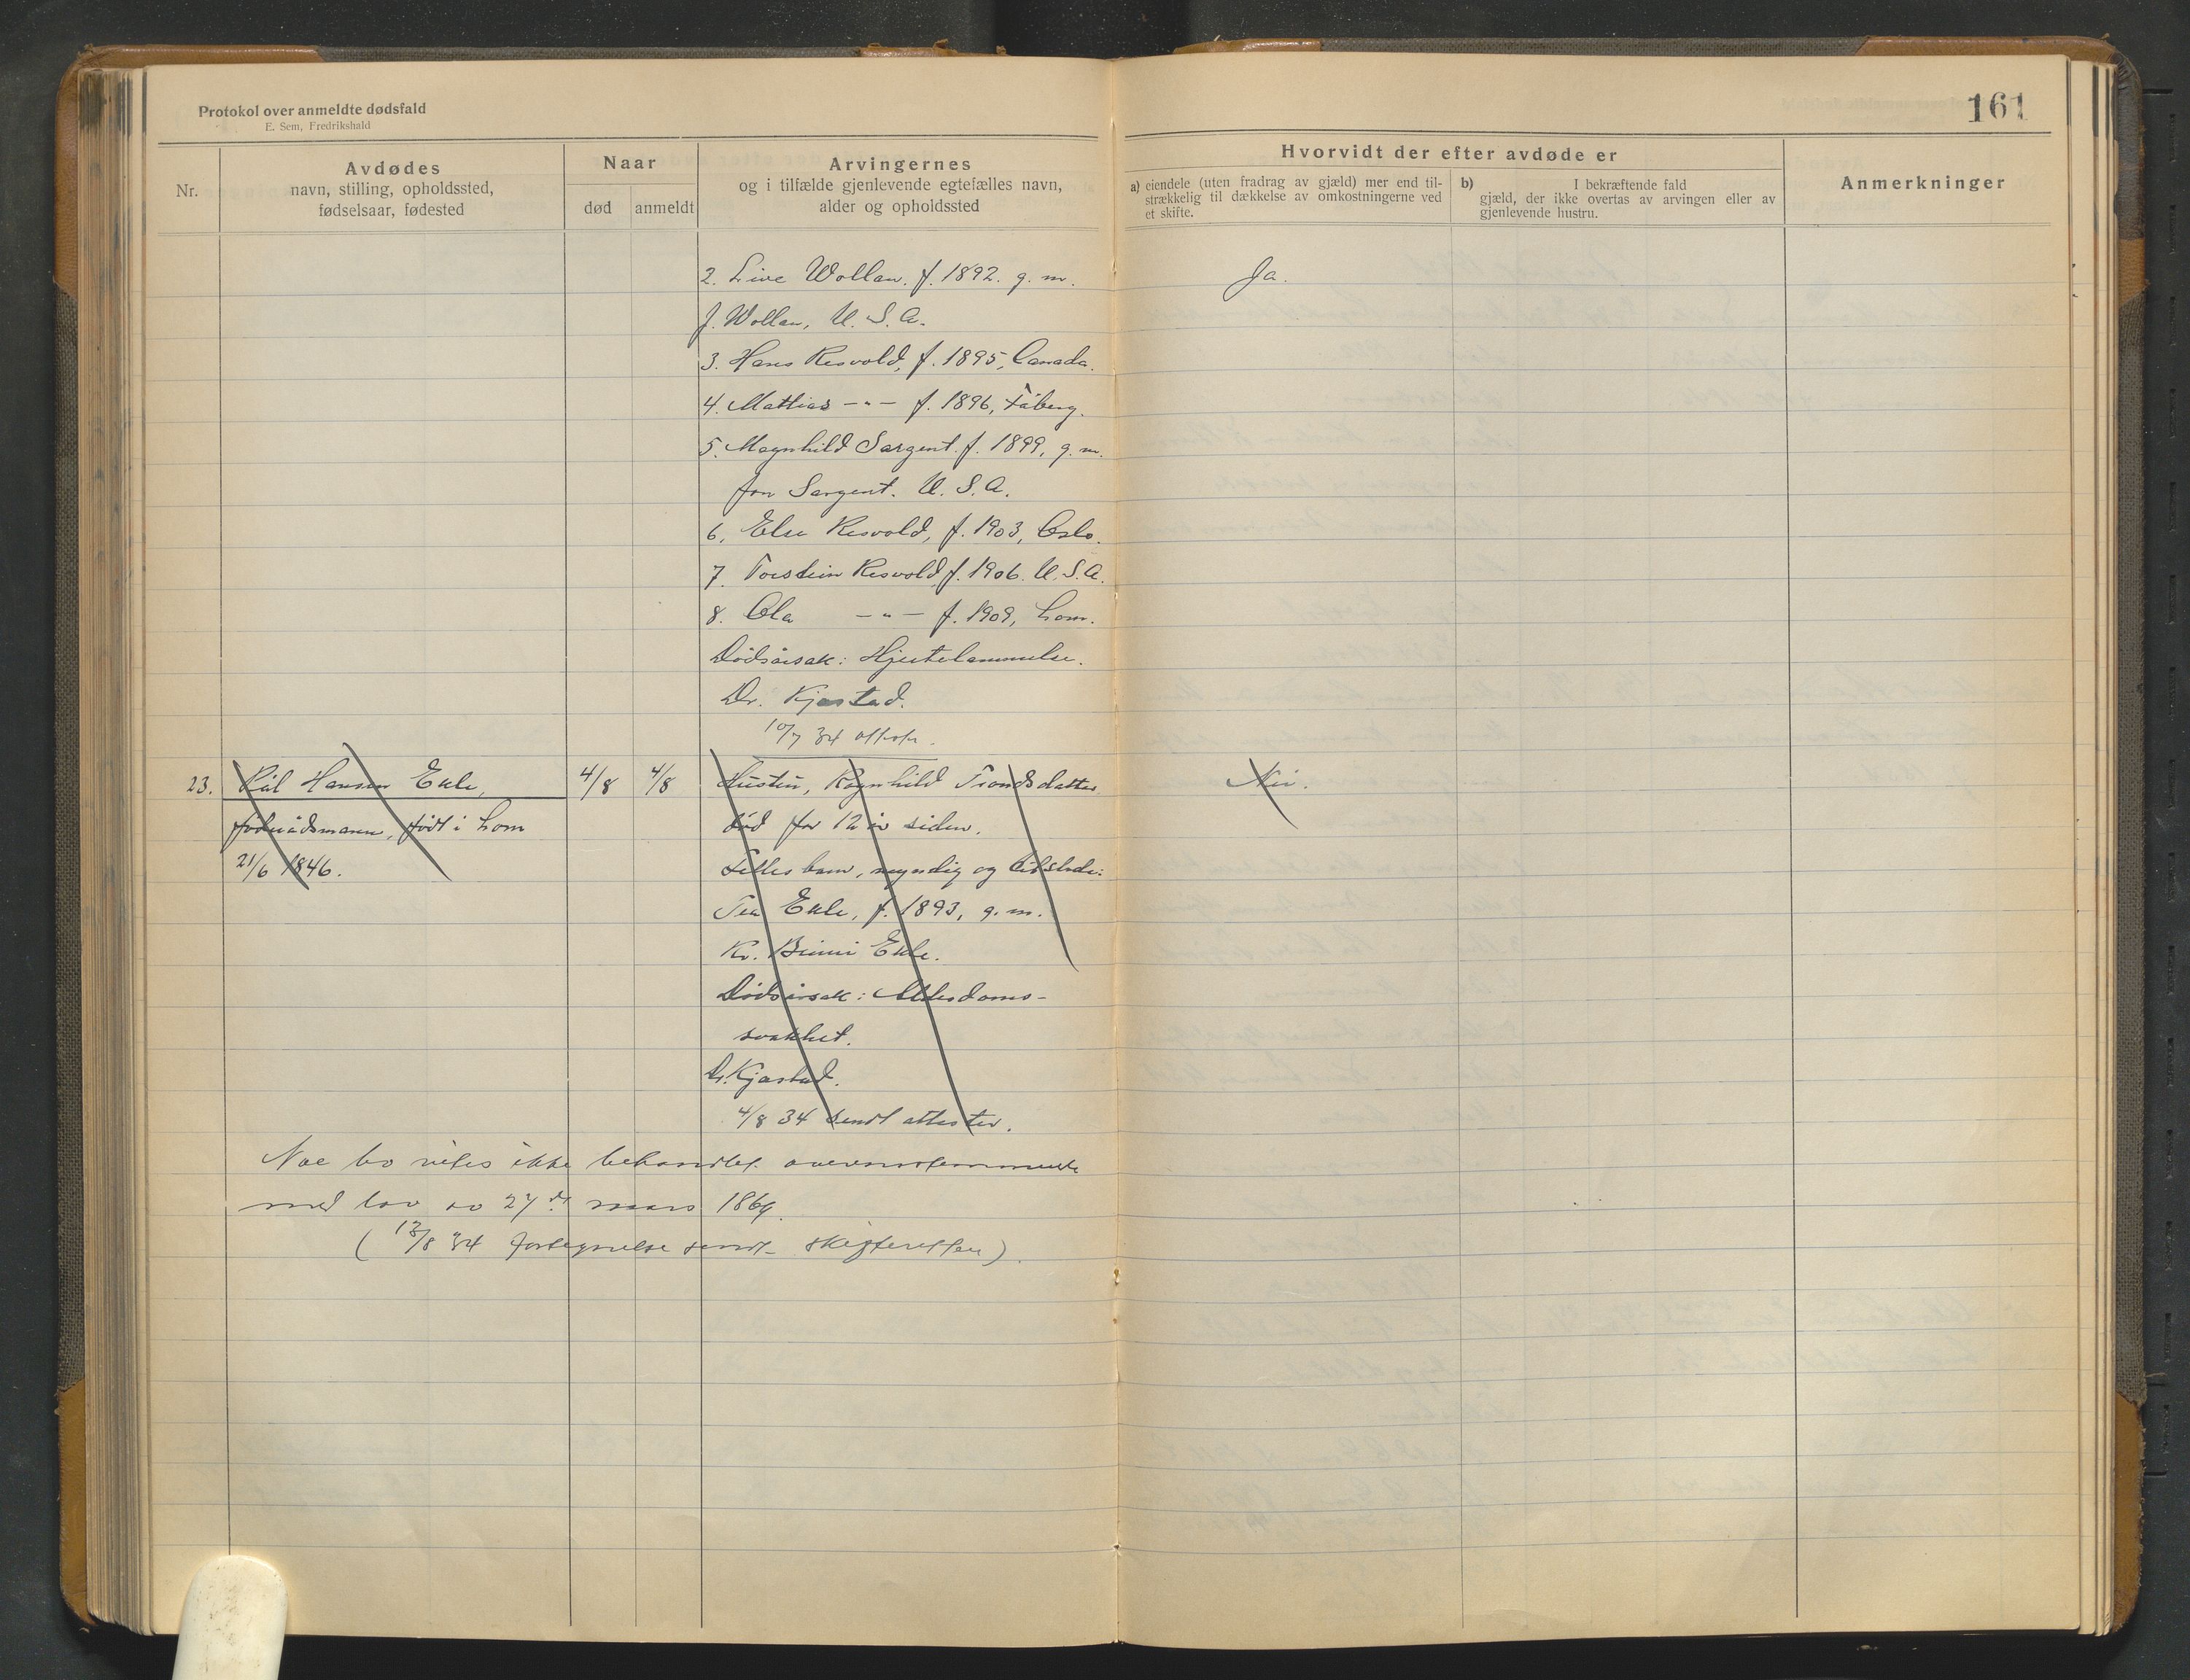 Protokol over anmeldte dødsfald
E. Sem, Fredrikshald
161
Nr.
Avdødes
navn, stilling, opholdssted,
fødselsaar, fødested
Naar
død
anmeldt
Arvingernes
og i tilfælde gjenlevende egtefælles navn,
alder og opholdssted
Hvorvidt der efter avdøde er
a) eiendele (uten fradrag av gjæld) mer end til-
strækkelig til dækkelse av omkostningerne ved
et skifte.
b) I bekræftende fald
gjæld, der ikke overtas av arvingen eller av
gjenlevende hustru.
Anmerkninger
2. Live Wollan. f. 1892. g. m. Ja.
J. Wollan, U. S. A.
3. Hans Resvold, f. 1895, Canada.
4. Mattias -"- f. 1896, Fåberg.
5. Magnhild Sargent. f. 1899, g. m.
Jon Sargent. U. S. A.
6. Else Resvold, f. 1903, Oslo.
7. Torstein Resvold f. 1906. U. S. A.
8. Ola -"- f. 1909, Lom.
Dødsårsak: Hjertelammelse.
Dr. Kjøstad.
10/7 34
23. Pål Hansen Ekle, 4/8 4/8 Hustru, Ragnhild Trondsdatter Nei.
føderådsmann, født i Lom død for 12 år siden.
21/6 1846. Felles barn, myndig og tilstede:
Tea Ekle, f. 1893, g. m.
Kr. Bimi Ekle.
Dødsårsak: Alderdoms-
svakhet.
Dr. Kjøstad.
4/8 34 sendt attester.
Noe bo vites ikke behandlet overensstemmende
med lov av 27de mars 1869.
( 13/8 34 fortegnelse sendt skifteretten)